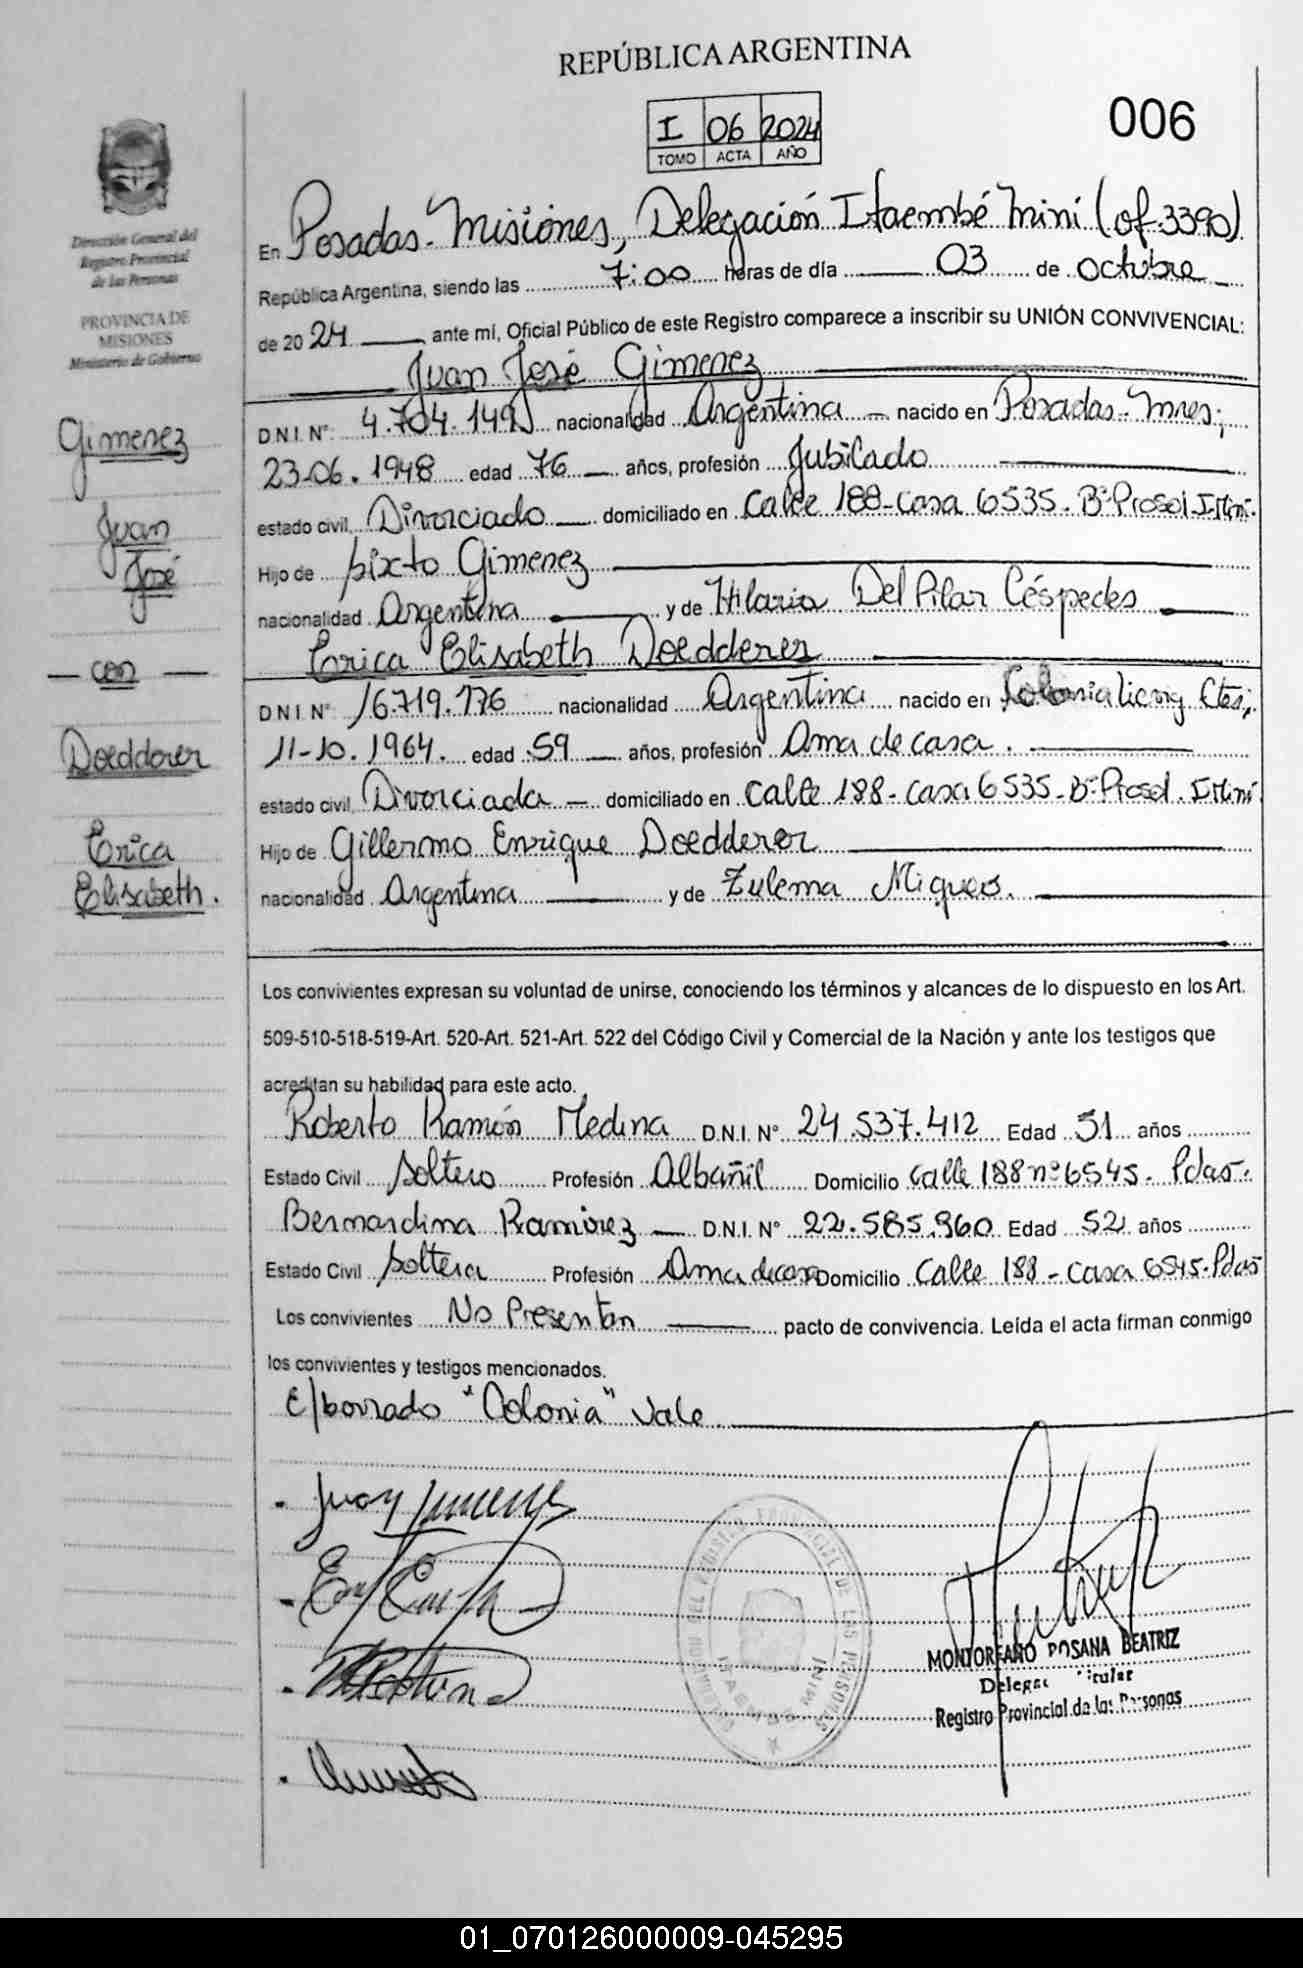 REPÚBLICA ARGENTINA
I 06 2024
TOMO ACTA AÑO
006
Dirección General del
Registro Provincial
de las Personas
PROVINCIA DE
MISIONES
Ministerio de Gobierno
En Posadas - Misiones, Delegación Itaembé Miní (of. 3390)
República Argentina, siendo las 7:00 horas de día 03 de Octubre
de 2024 ante mí, Oficial Público de este Registro comparece a inscribir su UNIÓN CONVIVENCIAL:
Juan José Gimenez
D.N.I. Nº 4.704.149 nacionalidad Argentina nacido en Posadas - Mnes;
23-06.1948 edad 76 años, profesión Jubilado
estado civil Divorciado domiciliado en Calle 188 - Casa 6535. Bº Prosol. I. Miní.
Hijo de Sixto Gimenez
nacionalidad Argentina y de Hilaria Del Pilar Céspedes
Erica Elisabeth Doedderer
D.N.I. Nº 16.719.176 nacionalidad Argentina nacido en Colonia Liebig Ctes;
11-10.1964. edad 59 años, profesión Ama de casa.
estado civil Divorciada domiciliado en Calle 188 - Casa 6535 - Bº Prosol. I Miní
Hijo de Gillermo Enrique Doedderer
nacionalidad Argentina y de Zulema
Gimenez
Juan
José
con
Doedderer
Erica
Elisabeth.
Los convivientes expresan su voluntad de unirse, conociendo los términos y alcances de lo dispuesto en los Art.
509-510-518-519-Art. 520-Art. 521-Art. 522 del Código Civil y Comercial de la Nación y ante los testigos que
acreditan su habilidad para este acto.
Roberto Ramón Medina D.N.I. Nº 24.537.412 Edad 51 años
Estado Civil Soltero Profesión Albañil Domicilio Calle 188 nº 6545. Pdas.
Bernardina Ramirez D.N.I. Nº 22.585.960 Edad 52 años
Estado Civil Soltera Profesión Ama de casa Domicilio Calle 188 - Casa 6545 - Pdas
Los convivientes No Presentan pacto de convivencia. Leída el acta firman conmigo
los convivientes y testigos mencionados.
E/borrado "Colonia" Vale
Juan Jimenez
REGISTRO PROVINCIAL DE LAS PERSONAS
ITAEMBE MINI
MONTOREANO ROSANA BEATRIZ
Delegada Titular
Registro Provincial de las Personas
01_070126000009-045295